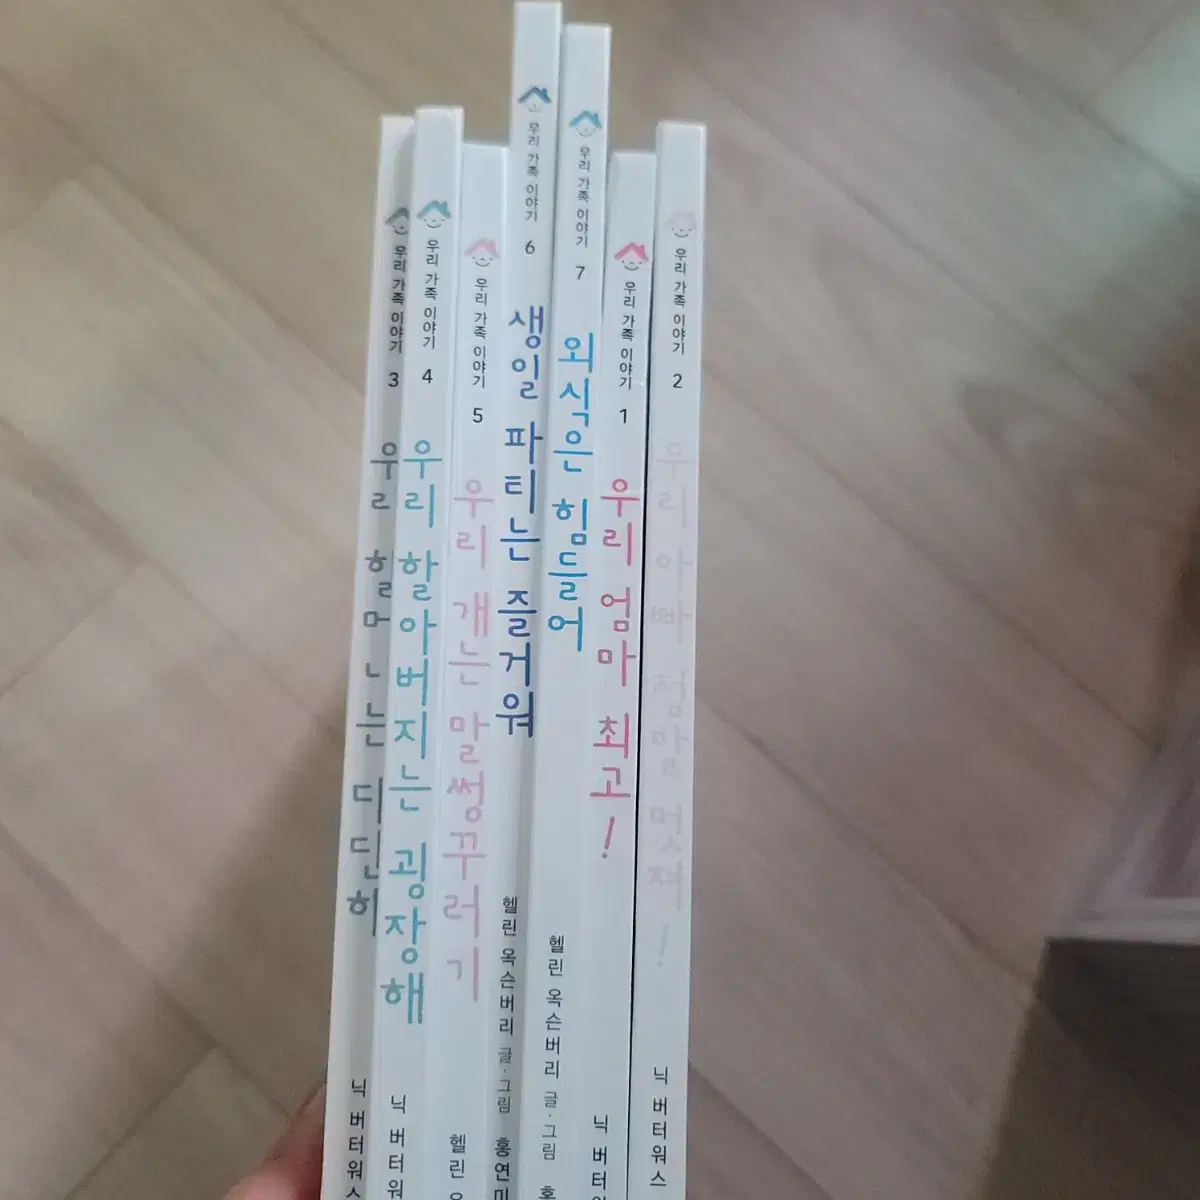 우리 가족 이야기 3 우리 할머니는 대단해 닉 버터워스
우리 가족 이야기 4 우리 할아버지는 굉장해 닉 버터워
우리 가족 이야기 5 우리 개는 말썽꾸러기 헬린
우리 가족 이야기 6 생일 파티는 즐거워 헬린 옥슨버리 글·그림 홍연미
우리 가족 이야기 7 외식은 힘들어 헬린 옥슨버리 글·그림 홍
우리 가족 이야기 1 우리 엄마 최고! 닉 버터워
우리 가족 이야기 2 우리 아빠 정말 멋져! 닉 버터워스